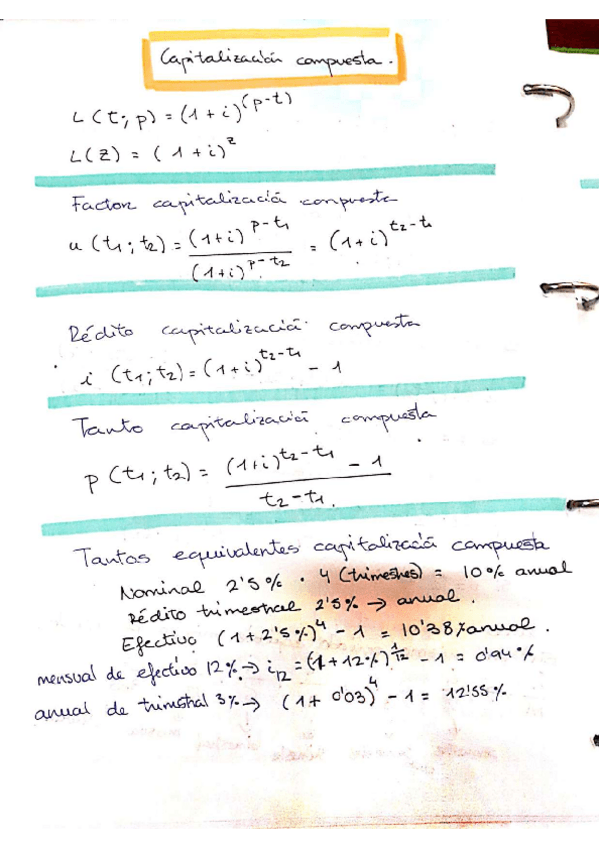 Capitalización compuesta.
L(t; p) = (1+i)^(p-t)
L(z) = (1+i)^z
Factor capitalización compuesta
u(t₁; t₂) = (1+i)^(p-t₁) / (1+i)^(p-t₂) = (1+i)^(t₂-t₁)
Rédito capitalización compuesta
i (t₁; t₂) = (1+i)^(t₂-t₁) - 1
Tanto capitalización compuesta
p (t₁; t₂) = ((1+i)^(t₂-t₁) - 1) / (t₂-t₁)
Tantos equivalentes capitalización compuesta
Nominal 2'5% · 4 (trimestres) = 10% anual
Rédito trimestral 2'5% → anual.
Efectivo (1+2'5%)^4 - 1 = 10'38% anual.
mensual de efectivo 12% → i₁₂ = (1+12%)^(1/12) - 1 = 0'94%
anual de trimstral 3% → (1+0'03)^4 - 1 = 12'55%